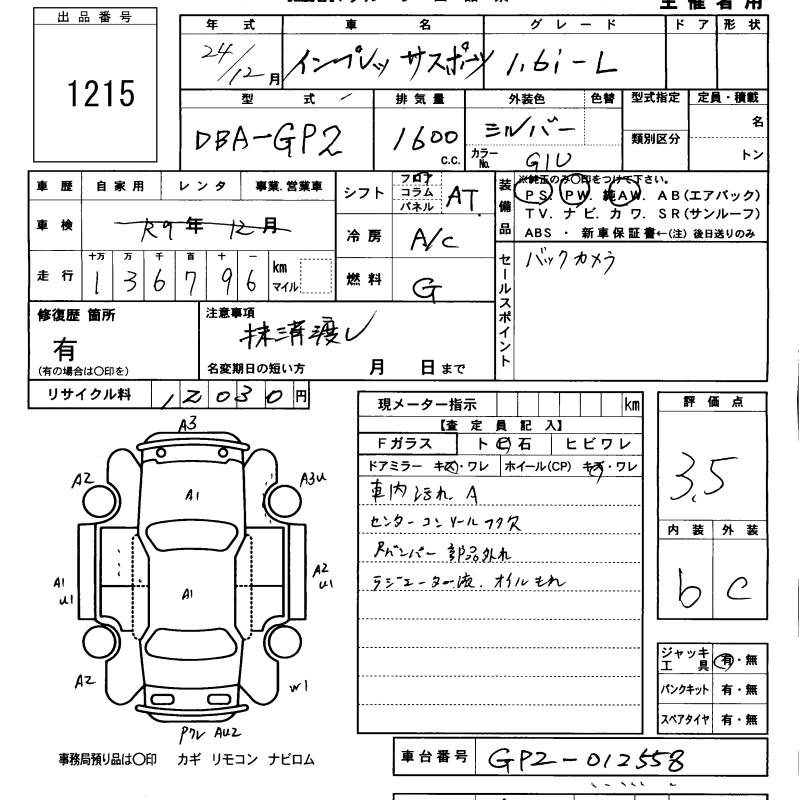 主催者用
出品番号
1215
年式 車名 グレード ドア 形状
24/12月 インプレッサスポーツ 1.6i-L
型式 排気量 外装色 色替 型式指定 定員・積載
DBA-GP2 1600 c.c. シルバー 類別区分 名
カラーNo. G1U トン
車歴 自家用 レンタ 事業.営業車
車検 R9年12月
走行 十万 万 千 百 十 一
136796 km マイル
シフト フロア コラム パネル AT
冷房 A/C
燃料 G
装備品 ※純正のみ○印をつけて下さい。
PS. PW. 純AW. AB(エアバック)
TV. ナビ. カワ. SR(サンルーフ)
ABS ・ 新車保証書←(注) 後日送りのみ
セールスポイント バックカメラ
修復歴 箇所
有
(有の場合は○印を)
注意事項
抹消渡し
名変期日の短い方 月 日まで
リサイクル料 12030円
現メーター指示 km
【査定員記入】
Fガラス トビ石 ヒビワレ
ドアミラー キズ・ワレ ホイール(CP) キズ・ワレ
車内汚れ A
センターコンソールフタ欠
Rバンパー 部品外れ
ラジエーター液. オイルもれ
評価点
3.5
内装 外装
b c
A3
A2 A1 A3U
A1 U1 A1 A2 U1
A2 W1
Pワレ AU2
ジャッキ工具 有・無
パンクキット 有・無
スペアタイヤ 有・無
事務局預り品は○印 カギ リモコン ナビロム
車台番号 GP2-012558